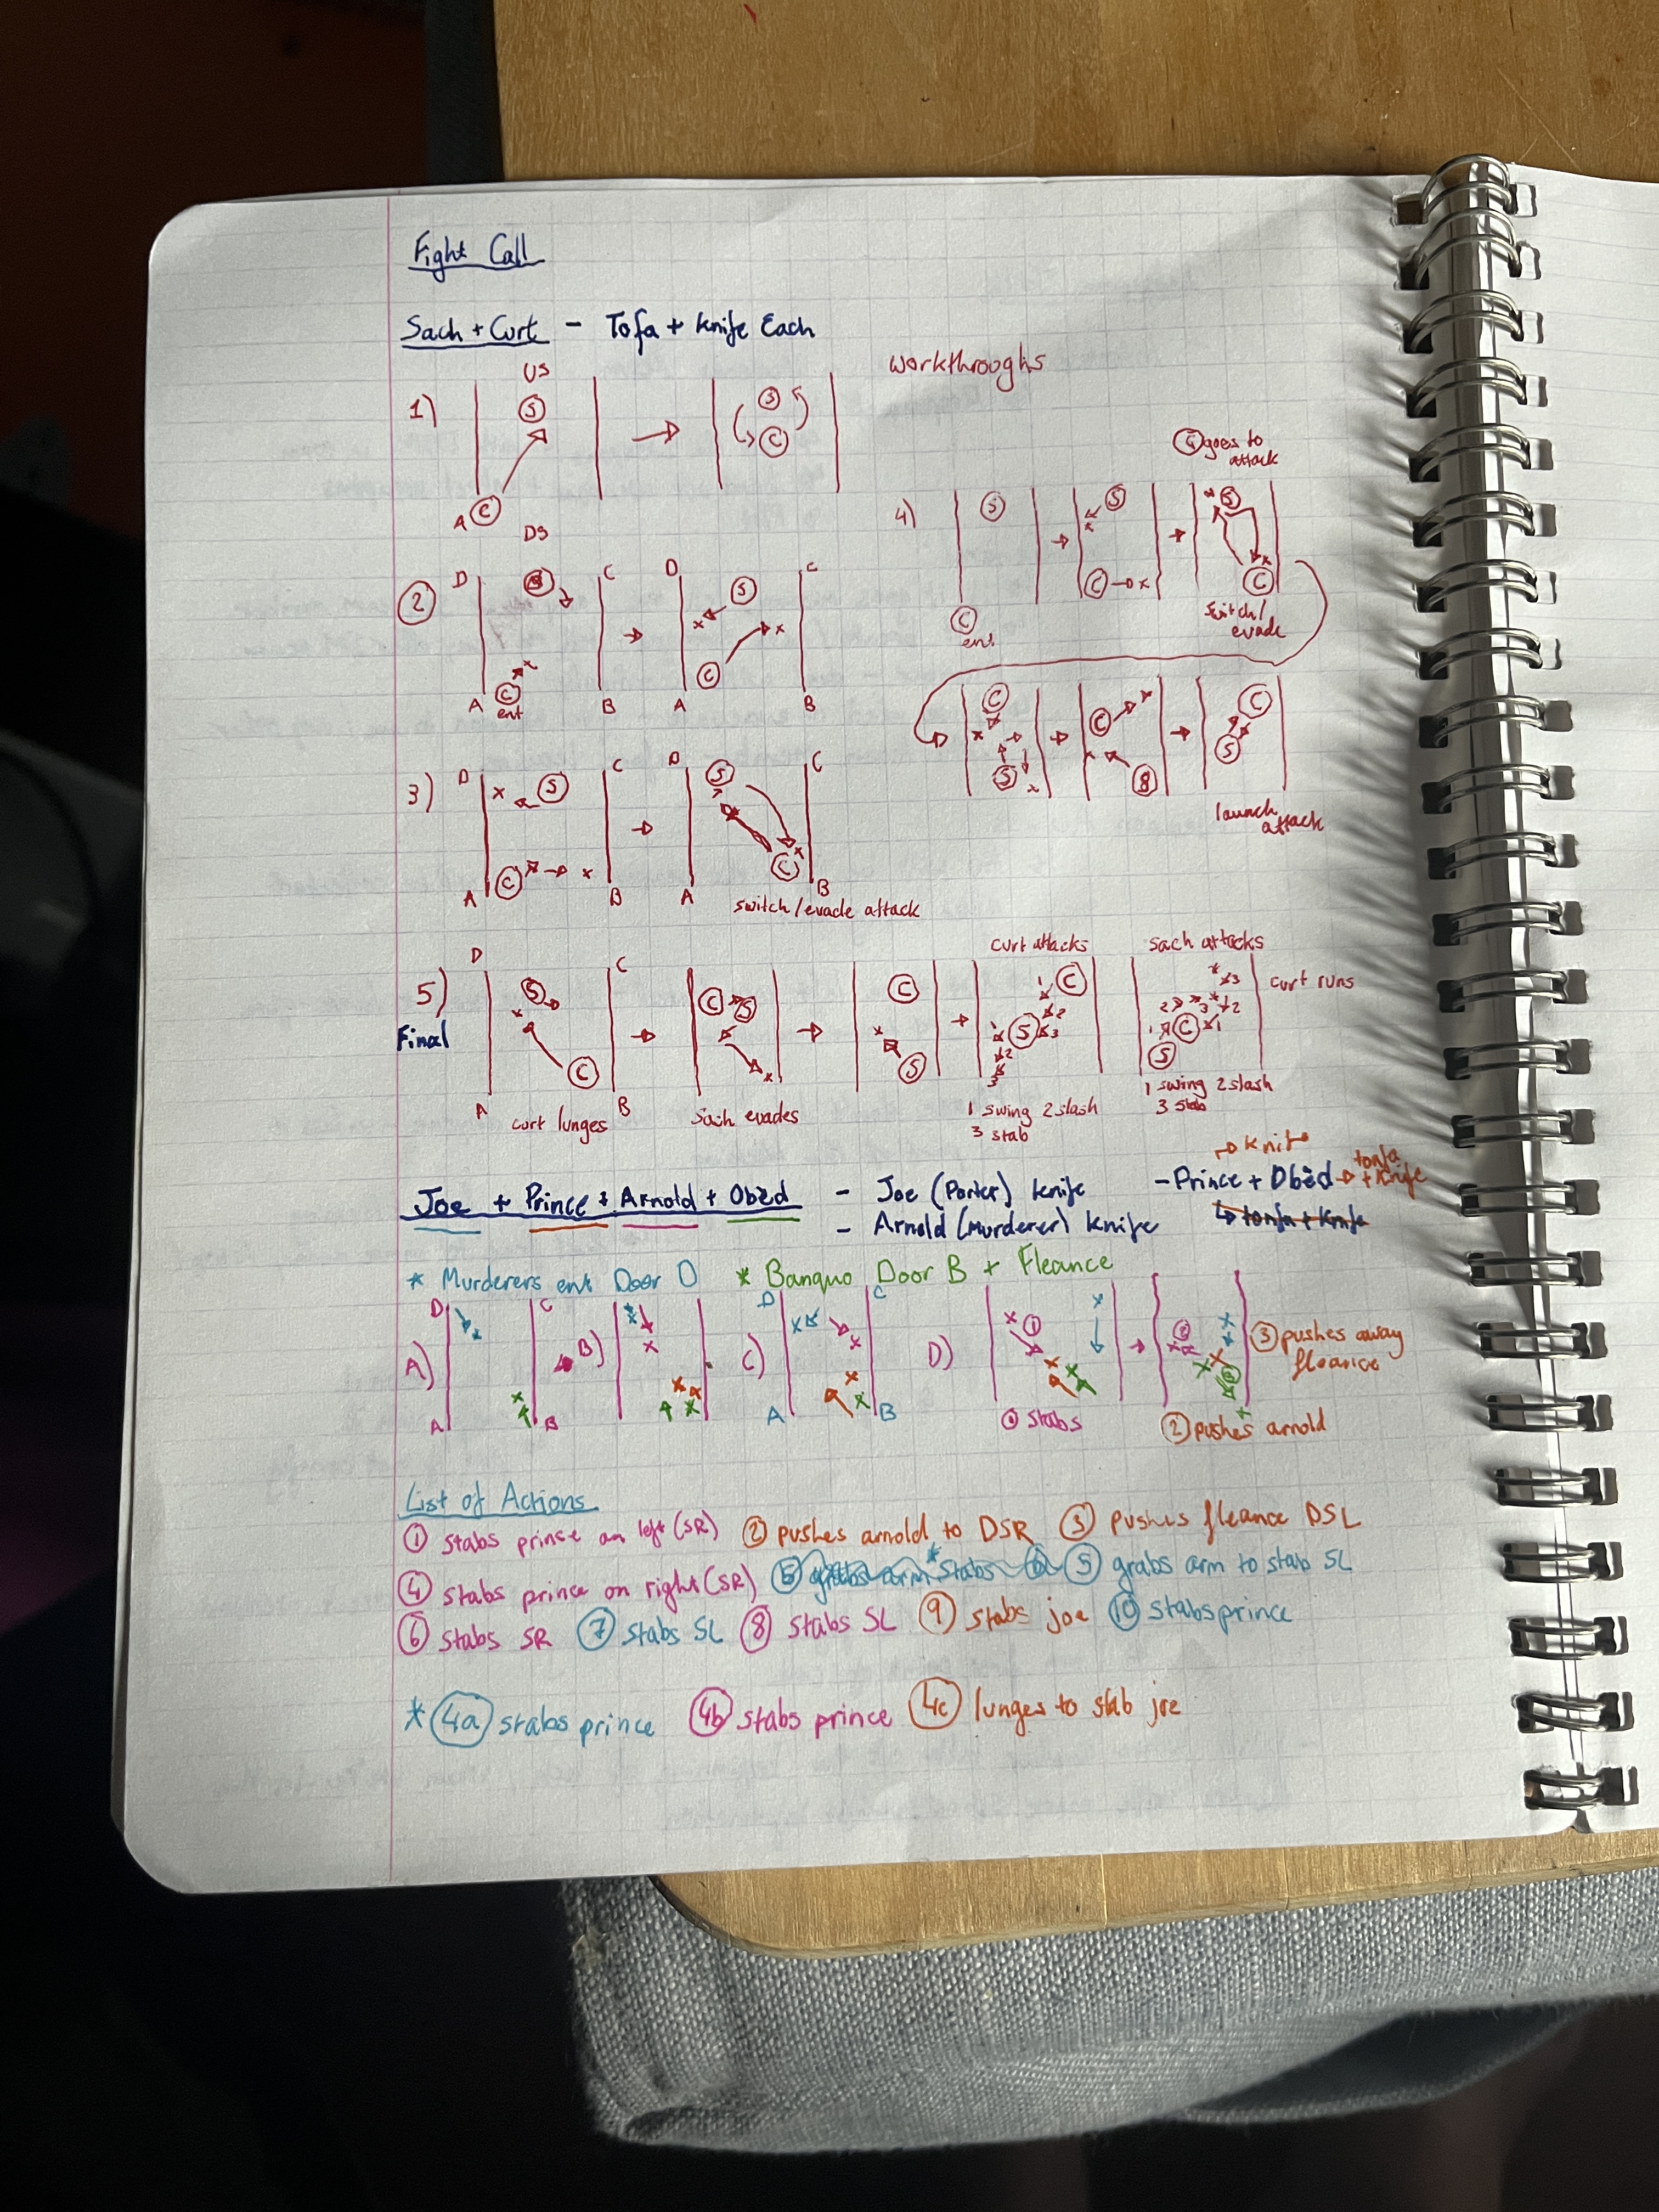 Fight Call
Sach + Curt - Tofa + Knife Each
workthroughs
1) US
S
S
C
A C
DS
4) S goes to attack
S
S
S
C
C
C
ent
switch/
evade
2 D C D C
S
S
C
C
A ent B A B
C
C
C
S
S
S
launch
attack
3) D C D C
S
S
C
C
A B A B
switch/evade attack
5) D C
Final
S
C
A B
curt lunges
C S
sach evades
C
S
curt attacks
1 C
2
S 3
1
2
3
1 swing 2 slash
3 stab
sach attacks
3
curt runs
2 3 2
1 C 1
S
1 swing 2 slash
3 stab
Joe + Prince + Arnold + Obèd - Joe (Porter) knife
- Arnold (Murderer) knife
→ knife
- Prince + Obèd → tonfa + knife
↳ tonfa + knife
* Murderers ent Door D * Banquo Door B + Fleance
A) D C
A B
B)
C) D C
A B
D) 1
① stabs
③ pushes away
fleance
② pushes arnold
List of Actions
① stabs prince on left (SR) ② pushes arnold to DSR ③ pushes fleance DSL
④ stabs prince on right (SR) ⑤ grabs arm * stabs ⑥ ⑤ grabs arm to stab SL
⑥ stabs SR ⑦ stabs SL ⑧ stabs SL ⑨ stabs joe ⑩ stabs prince
* 4a stabs prince 4b stabs prince 4c lunges to stab joe